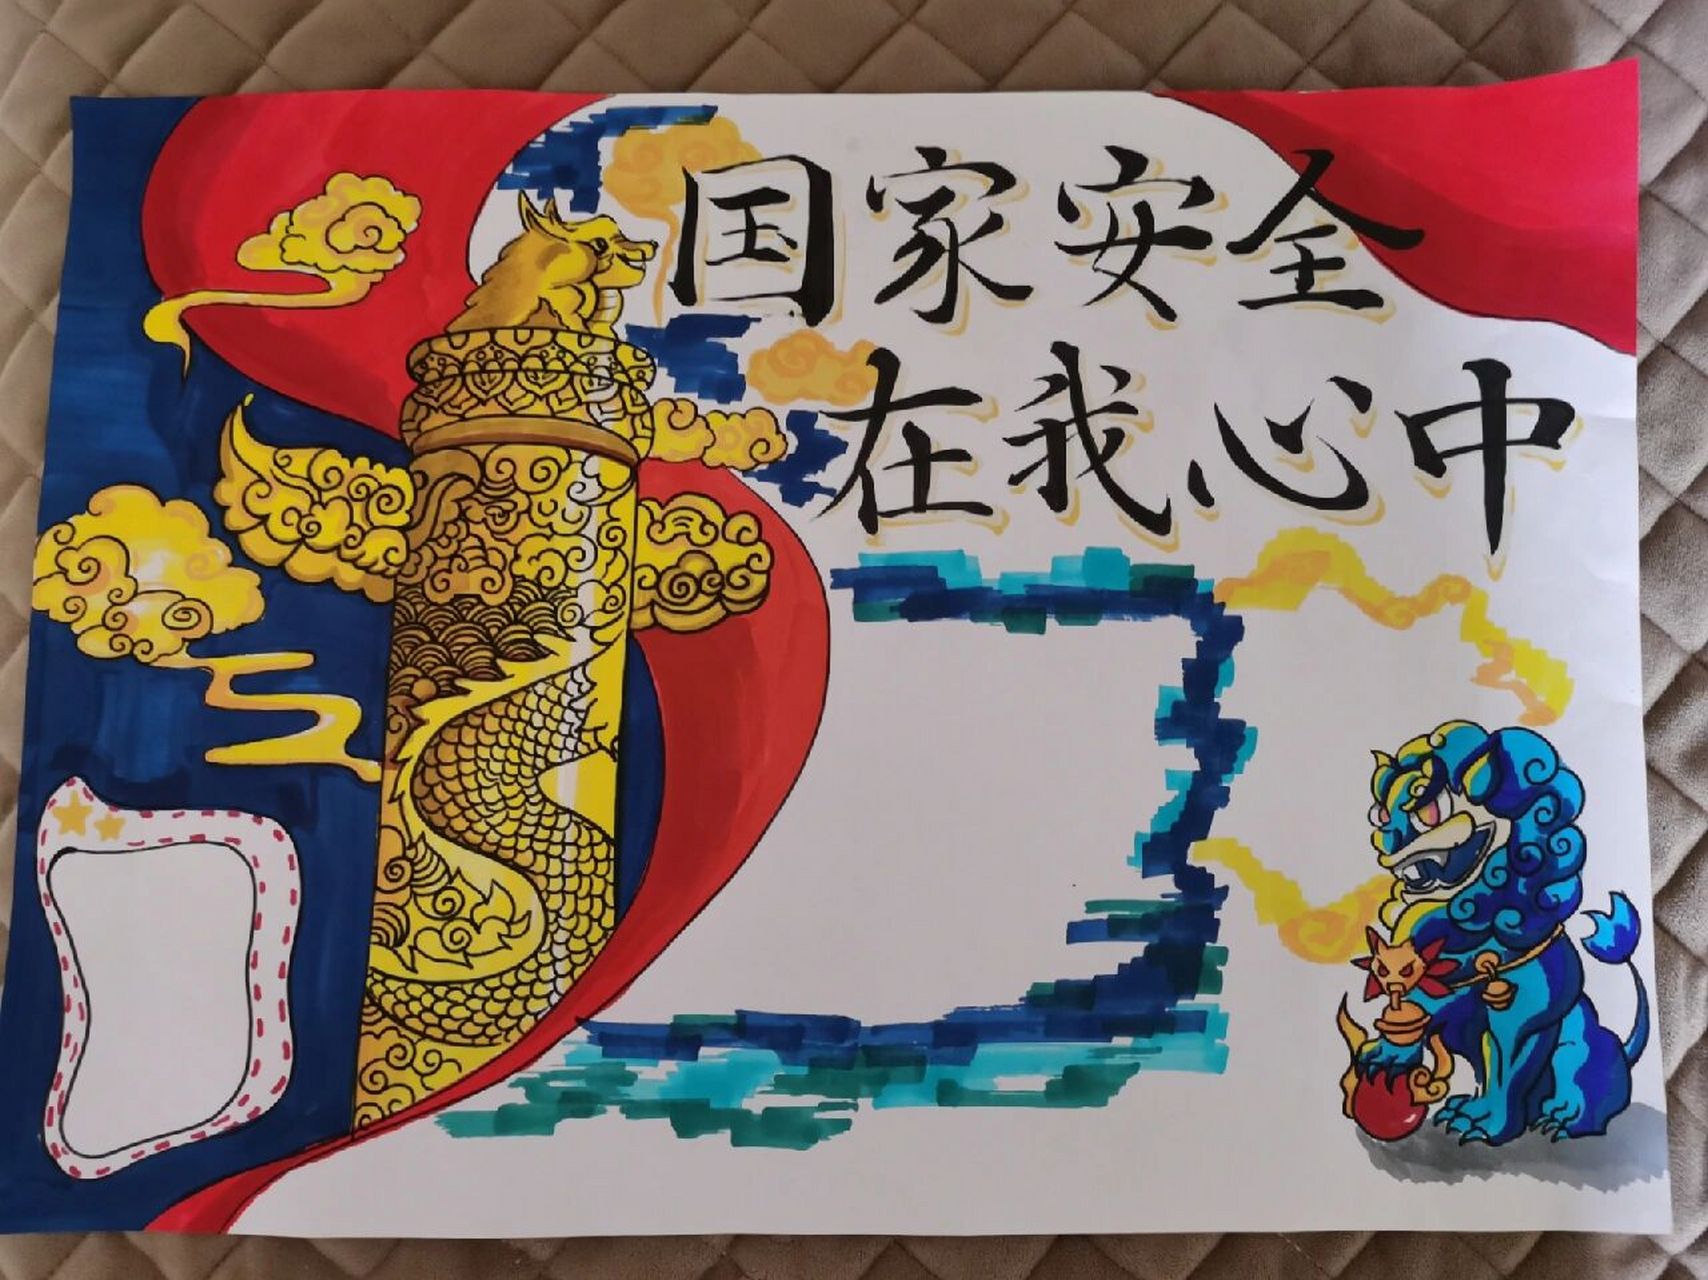 国家安全
在我心中